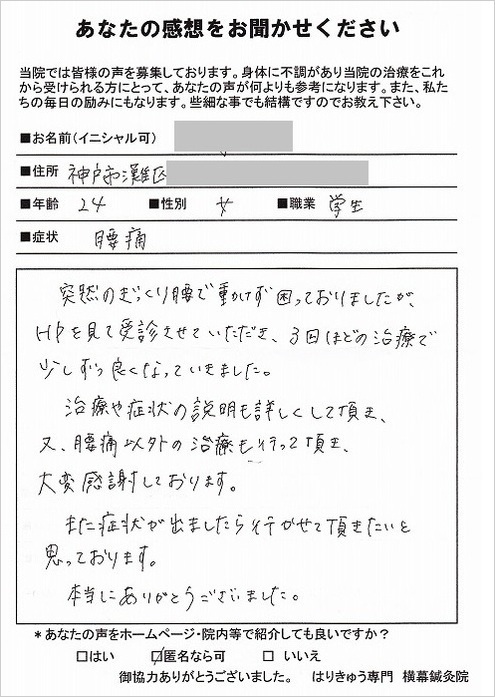 あなたの感想をお聞かせください
当院では皆様の声を募集しております。身体に不調があり当院の治療をこれ
から受けられる方にとって、あなたの声が何よりも参考になります。また、私た
ちの毎日の励みにもなります。些細な事でも結構ですのでお教え下さい。
■お名前(イニシャル可)
■住所 神戸市灘区
■年齢 24 ■性別 女 ■職業 学生
■症状 腰痛
突然のぎっくり腰で動けず困っておりましたが、
HPを見て受診させていただき、3回ほどの治療で
少しずつ良くなっていきました。
治療や症状の説明も詳しくして頂き、
又、腰痛以外の治療も行って頂き、
大変感謝しております。
また症状が出ましたら行かせて頂きたいと
思っております。
本当にありがとうございました。
*あなたの声をホームページ・院内等で紹介しても良いですか?
□はい ☑匿名なら可 □いいえ
御協力ありがとうございました。 はりきゅう専門 横幕鍼灸院